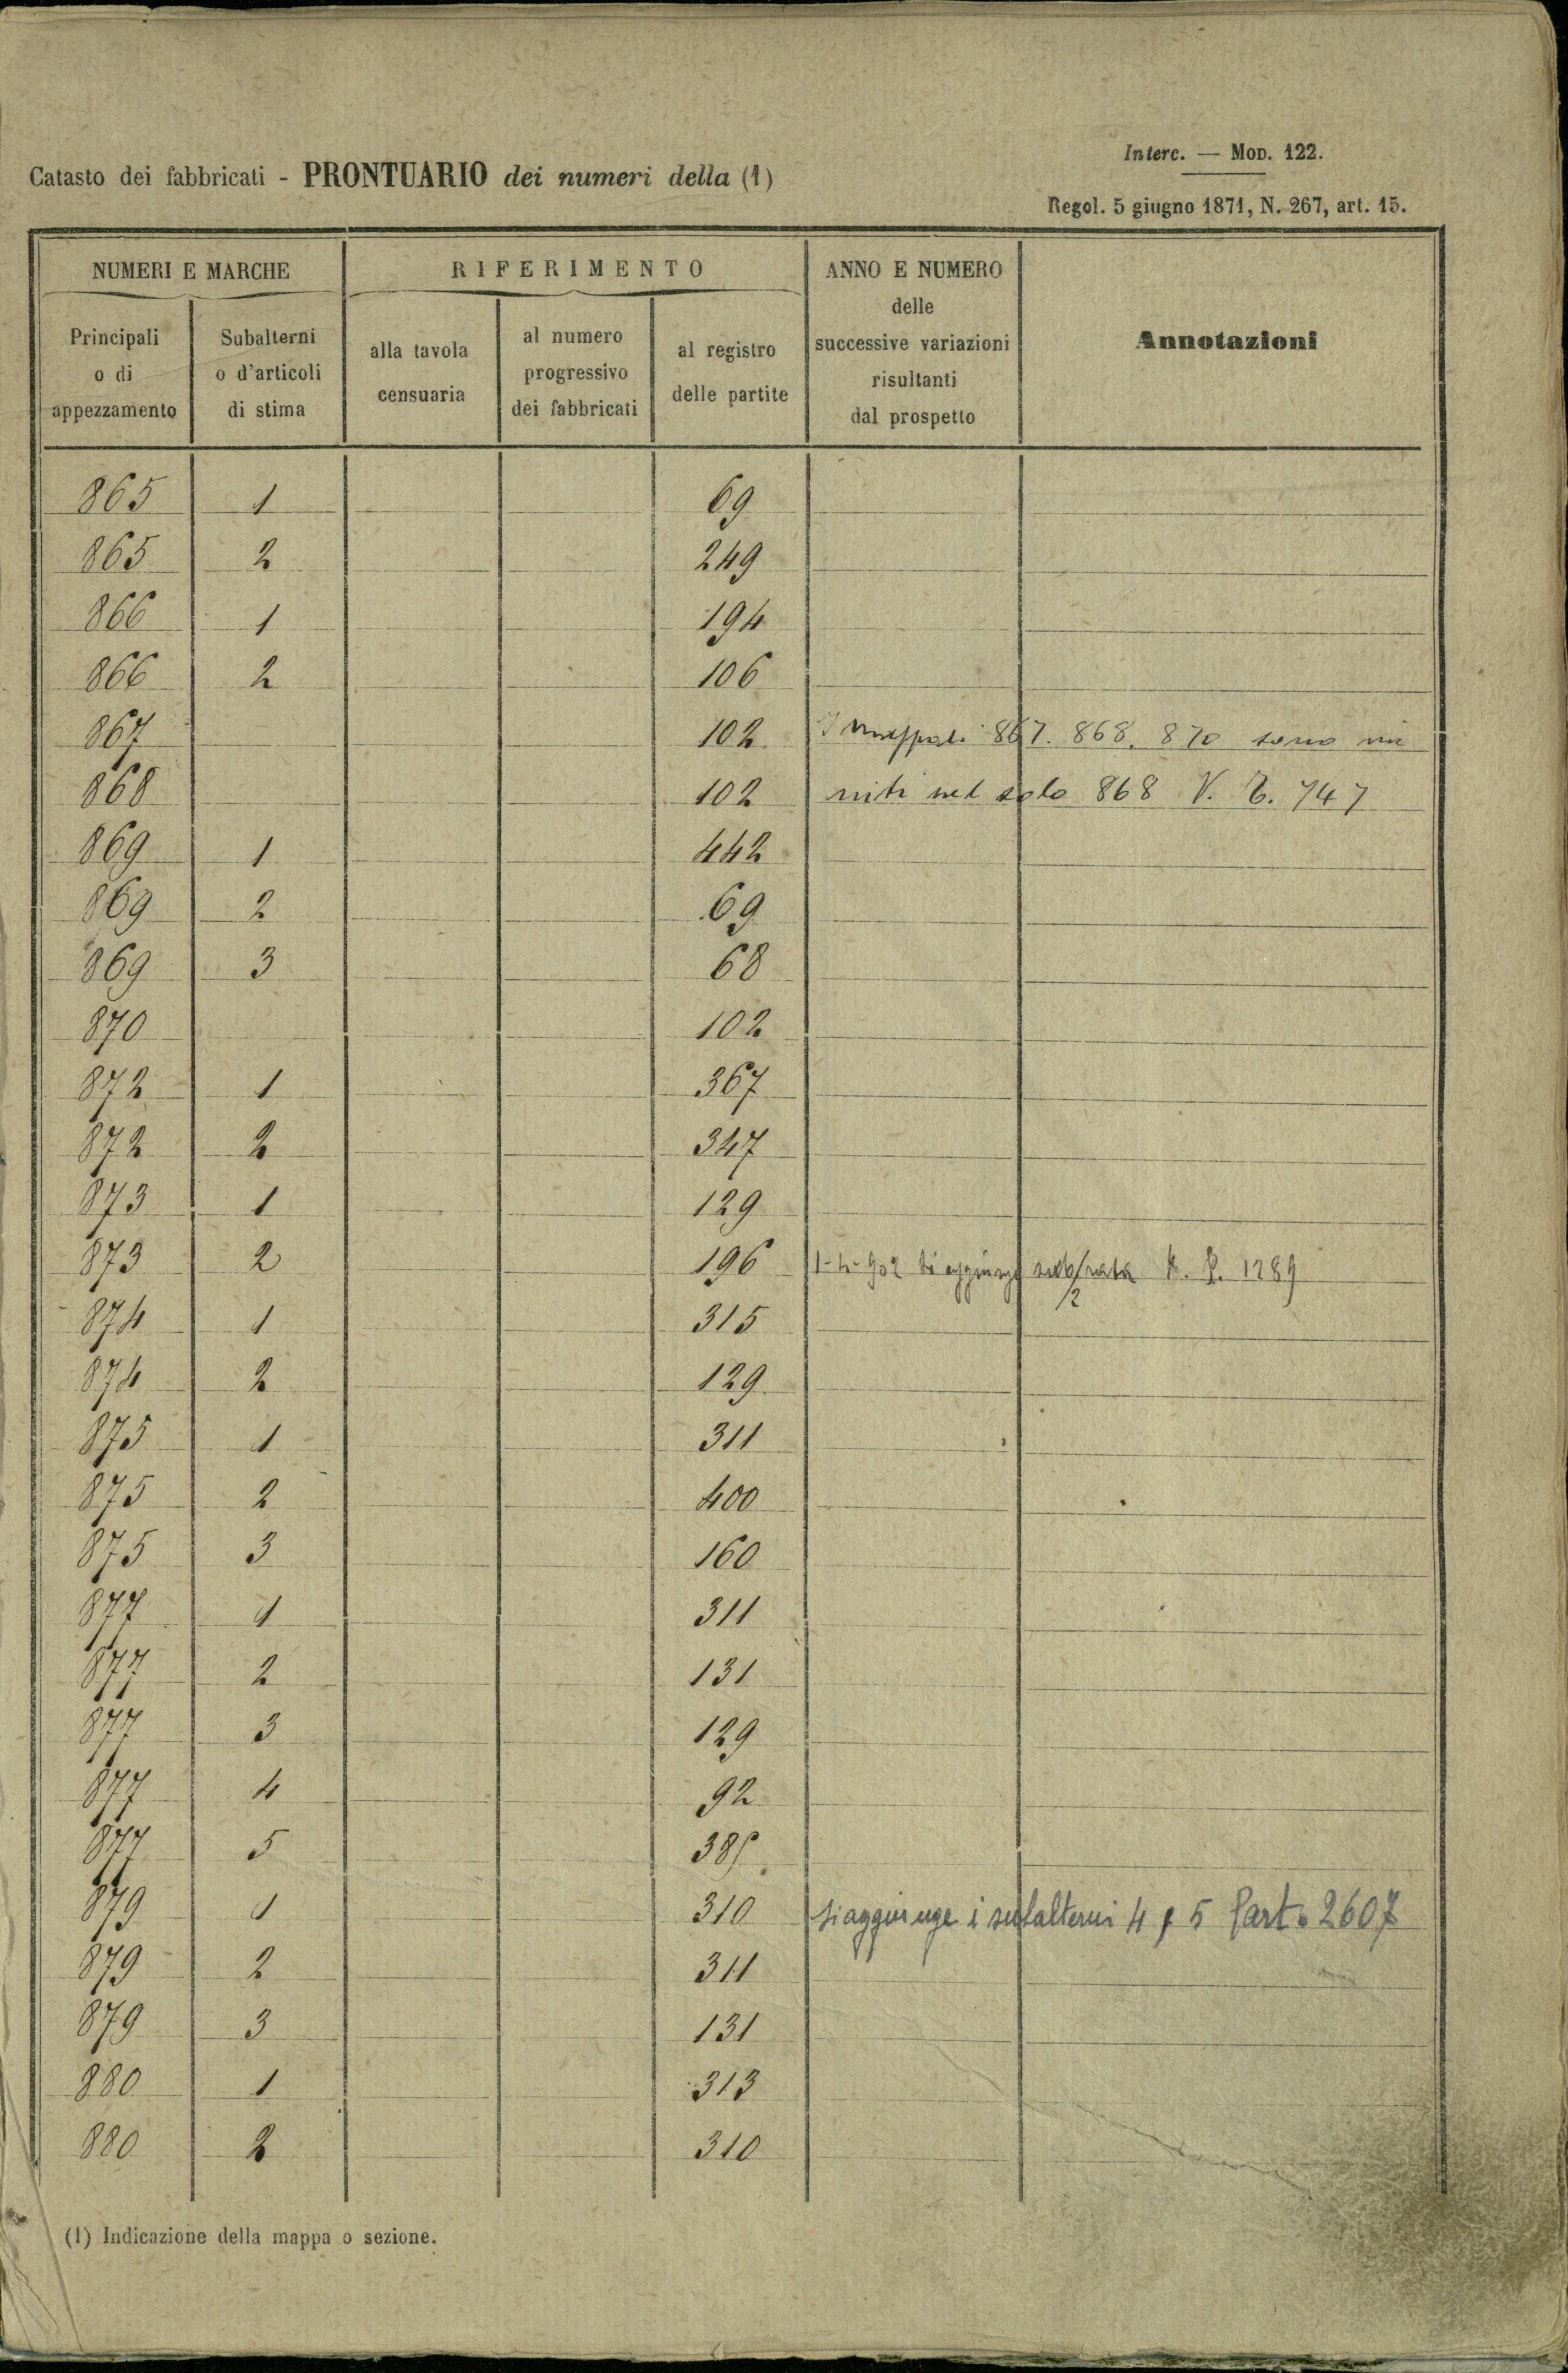 Interc. — Mod. 122.
Catasto dei fabbricati - PRONTUARIO dei numeri della (1)
Regol. 5 giugno 1871, N. 267, art. 15.
NUMERI E MARCHE RIFERIMENTO ANNO E NUMERO delle successive variazioni risultanti dal prospetto Annotazioni
Principali o di appezzamento Subalterni o d'articoli di stima alla tavola censuaria al numero progressivo dei fabbricati al registro delle partite
865 1 69
865 2 249
866 1 194
866 2 106
867 102 I mappali 867. 868. 870 sono riu
868 102 niti nel solo 868 V. 747
869 1 442
869 2 69
869 3 68
870 102
872 1 367
872 2 347
873 1 129
873 2 196 si aggiunge 1289
874 1 315
874 2 129
875 1 311
875 2 400
875 3 160
877 1 311
877 2 131
877 3 129
877 4 92
877 5
879 1 310 si aggiunge i subalterni 4, 5 Part. 2607
879 2 311
879 3 131
880 1 313
880 2 310
(1) Indicazione della mappa o sezione.